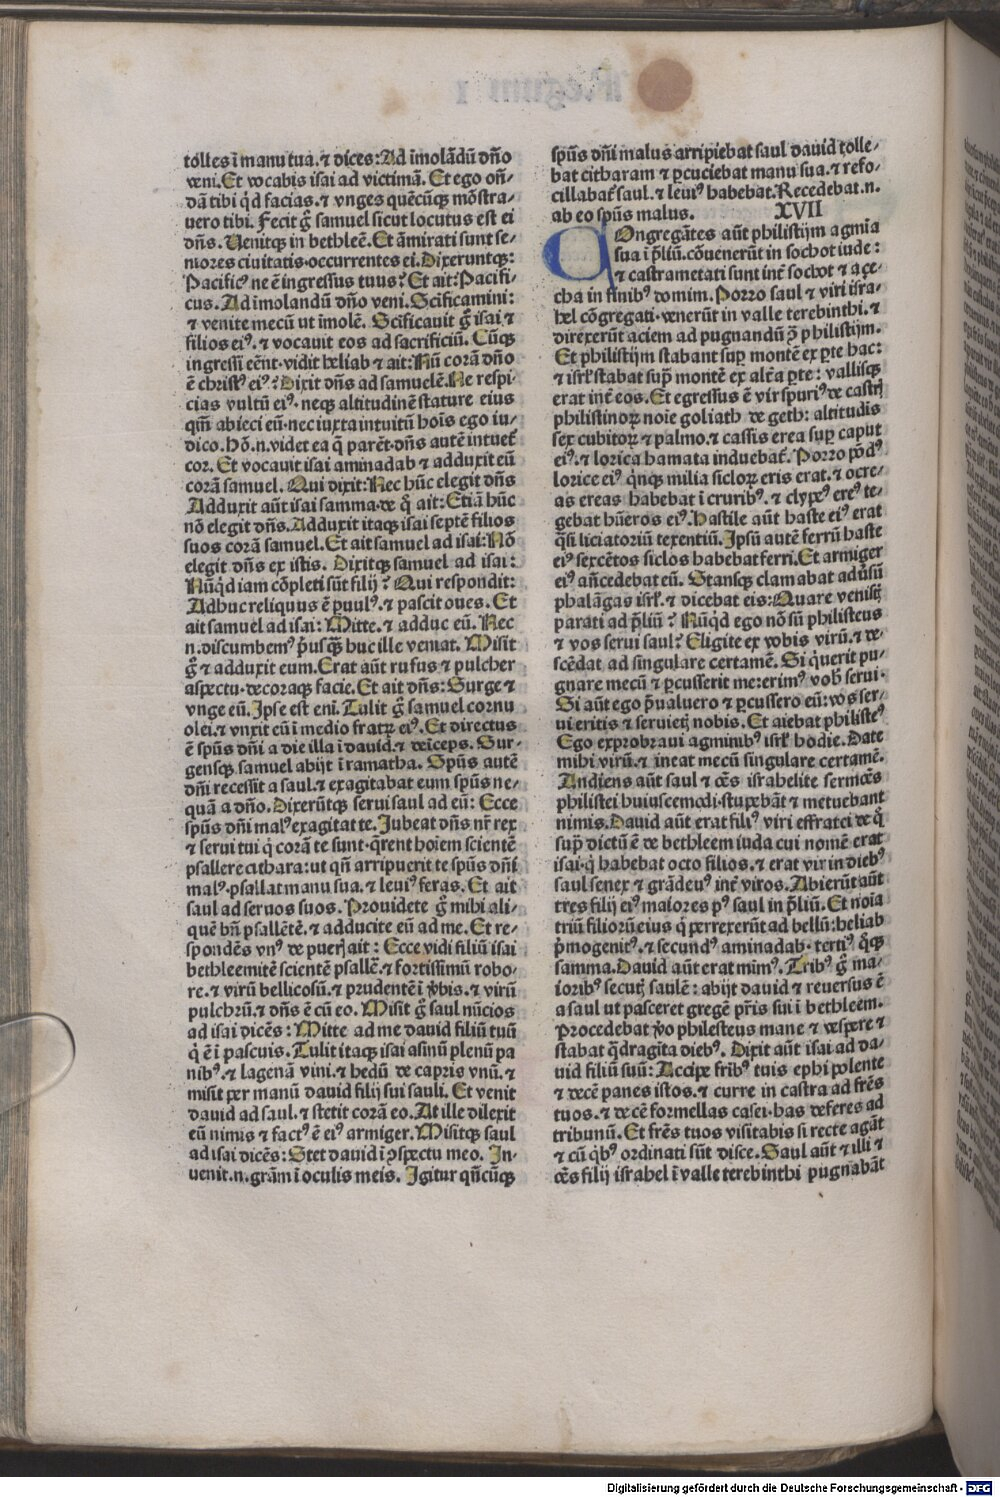 tolles ī manu tua.⁊ dices:Ad īmolādū dño
veni.Et vocabis isai ad victimā. Et ego oñ-
dā tibi qd facias.⁊ vnges quēcūqꝫ mōstra-
uero tibi. Fecit gͦ samuel sicut locutus est ei
dñs. Uenitqꝫ in bethleē.Et āmirati sunt se-
niores ciuitatis·occurrentes ei.Dixeruntqꝫ:
Pacificꝰ ne ē ingressus tuus? Et ait:Pacifi-
cus. Ad īmolandū dño veni.Scificamini:
⁊ venite mecū ut īmolē. Scificauit gͦ isai ⁊
filios eiꝰ.⁊ vocauit eos ad sacrificiū. Cūqꝫ
ingressi eēnt·vidit heliab ⁊ ait:Nū corā dño
ē christꝰ eiꝰ? Dixit dñs ad samuelē.Ne respi-
cias vultū eiꝰ·neqꝫ altitudinē stature eius
qm̄ abieci eū·nec iuxta intuitū hoīs ego iu-
dico.Hō.n.videt ea q̄ parēt·dñs autē intuet̄
cor. Et vocauit isai aminadab ⁊ adduxit eū
corā samuel. Qui dixit:Nec hūc elegit dñs
Adduxit aūt isai samma·de q̄ ait:Etiā hūc
nō elegit dñs.Adduxit itaqꝫ isai septē filios
suos corā samuel.Et ait samuel ad isai:Nō
elegit dñs ex istis. Dixitqꝫ samuel ad isai:
Nūqd iam cōpleti sūt filij? Qui respondit:
Adhuc reliquus ē puulꝰ.⁊ pascit oues. Et
ait samuel ad isai: Mitte.⁊ adduc eū. Nec
n.discumbemꝰ p̄usqꝫ huc ille veniat. Misit
gͦ ⁊ adduxit eum.Erat aūt rufus ⁊ pulcher
aspectu·decoraqꝫ facie.Et ait dñs:Surge ⁊
vnge eū. Ipse est eni. Tulit gͦ samuel cornu
olei.⁊ vnxit eū ī medio fratrꝫ eiꝰ. Et directus
ē spūs dñi a die illa ī dauid.⁊ deiceps. Sur-
gensqꝫ samuel abijt ī ramatha. Spūs autē
dñi recessit a saul.⁊ exagitabat eum spūs ne-
quā a dño. Dixerūtqꝫ serui saul ad eū: Ecce
spūs dñi malꝰ exagitat te. Jubeat dñs nr̄ rex
⁊ serui tui q̄ corā te sunt·qrent hoīem scientē
psallere cithara:ut qn̄ arripuerit te spūs dñi
malꝰ·psallat manu sua.⁊ leuiꝰ feras. Et ait
saul ad seruos suos. Prouidete gͦ mihi ali-
quē bn̄ psallētē.⁊ adducite eū ad me. Et re-
spondēs vnꝰ de puerꝭ ait: Ecce vidi filiū isai
bethleemitē scientē psallē.⁊ fortissimū robo-
re.⁊ virū bellicosū.⁊ prudentē ī vbis.⁊ virū
pulchrū.⁊ dñs ē cū eo. Misit gͦ saul nūcios
ad isai dicēs: Mitte ad me dauid filiū tuū
q̄ ē ī pascuis. Tulit itaqꝫ isai asinū plenū pa
nibꝰ.⁊ lagenā vini.⁊ hedū de capris vnū.⁊
misit per manū dauid filij sui sauli. Et venit
dauid ad saul.⁊ stetit corā eo. At ille dilexit
eū nimis ⁊ factꝰ ē eiꝰ armiger. Misitqꝫ saul
ad isai dicēs: Stet dauid ī ꝯspectu meo. In-
uenit.n.grām ī oculis meis. Igitur qn̄cūqꝫ
spūs dñi malus arripiebat saul dauid tolle-
bat citharam ⁊ ꝑcuciebat manu sua.⁊ refo-
cillabat̄ saul.⁊ leuiꝰ habebat.Recedebat.n.
ab eo spūs malus. XVII
COngregātes aūt philistijm agmīa
sua ī p̄liū.cōuenerūt in sochot iude:
⁊ castrametati sunt int̄ sochot ⁊ aze-
cha in finibꝰ domim. Porro saul ⁊ viri isra-
hel cōgregati·venerūt in valle terebinthi.⁊
direxerūt aciem ad pugnandū ꝯ philistijm.
Et philistijm stabant suꝑ montē ex ꝑte hac:
⁊ isrl̄ stabat suꝑ montē ex alt̄a ꝑte: vallisqꝫ
erat int̄ eos.Et egressus ē vir spuriꝰ de castrꝭ
philistinorꝫ noīe goliath de geth: altitudīs
sex cubitorꝫ ⁊ palmo.⁊ cassis erea suꝑ caput
eiꝰ.⁊ lorica hamata induebat̄. Porro pōdꝰ
lorice eiꝰ qnqꝫ milia siclorꝫ eris erat.⁊ ocre-
as ereas habebat ī cruribꝰ.⁊ clypeꝰ ereꝰ te-
gebat hūeros eiꝰ.Hastile aūt haste eiꝰ erat
qsi liciatoriū texentiū.Ipsū autē ferrū haste
eiꝰ sexcētos siclos habebat ferri.Et armiger
eiꝰ añcedebat eū. Stansqꝫ clamabat adūsū
phalāgas isrl̄.⁊ dicebat eis:Quare venistꝭ
parati ad p̄liū? Nūqd ego nō sū philisteus
⁊ vos serui saul? Eligite ex vobis virū.⁊ de-
scēdat ad singulare certamē. Si q̄uerit pu-
gnare mecū ⁊ ꝑcusserit me:erimꝰ vob̄ serui·
Si aūt ego p̄ualuero ⁊ ꝑcussero eū:vos ser-
ui eritis ⁊ seruietꝭ nobis. Et aiebat philisteꝰ
Ego exprobraui agminibꝰ isrl̄ hodie. Date
mihi virū.⁊ ineat mecū singulare certamē.
Andiens aūt saul ⁊ oēs israhelite sermōes
philistei huiuscemodi·stupebāt ⁊ metuebant
nimis.Dauid aūt erat filiꝰ viri effratei de q̄
supͣ dictū ē de bethleem iuda cui nomē erat
isai·q̄ habebat octo filios.⁊ erat vir in diebꝰ
saul senex ⁊ grādeuꝰ int̄ viros. Abierūt aūt
tres filij eiꝰ maiores pꝰ saul in p̄liū. Et noīa
triū filiorū eius q̄ perrexerūt ad bellū:heliab
p̄mogenitꝰ.⁊ secundꝰ aminadab·tertiꝰ q̄qꝫ
samma.Dauid aūt erat mīmꝰ. Tribꝰ gͦ ma-
ioribꝰ secutꝭ saulē: abijt dauid ⁊ reuersus ē
a saul ut pasceret gregē pr̄is sui ī bethleem.
Procedebat vo philesteus mane ⁊ vespere ⁊
stabat qdragīta diebꝰ. Dixit aūt isai ad da-
uid filiū suū: Accipe fribꝰ tuis ephi polente
⁊ decē panes istos.⁊ curre in castra ad fr̄es
tuos.⁊ decē formellas casei·has deferes ad
tribunū. Et fr̄es tuos visitabis si recte agāt
⁊ cū qbꝰ ordinati sūt disce. Saul aūt ⁊ illi ⁊
oēs filij israbel ī valle terebinthi pugnabāt
Digitalisierung gefördert durch die Deutsche Forschungsgemeinschaft - DFG